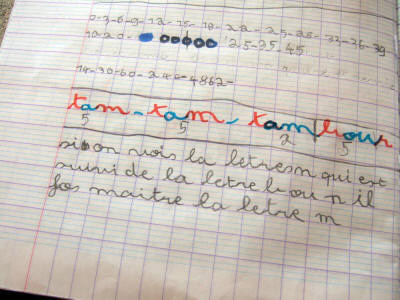 0-3-6-9-12-15-18-22-25-28-32-36-39
10-20- 25-35-45
14-30-60-240-4862-
tam-tam, tambour
5 5 2 5
si on vois la letresm qui est
suivi de la letre b ou p il
fos maitre la letre m